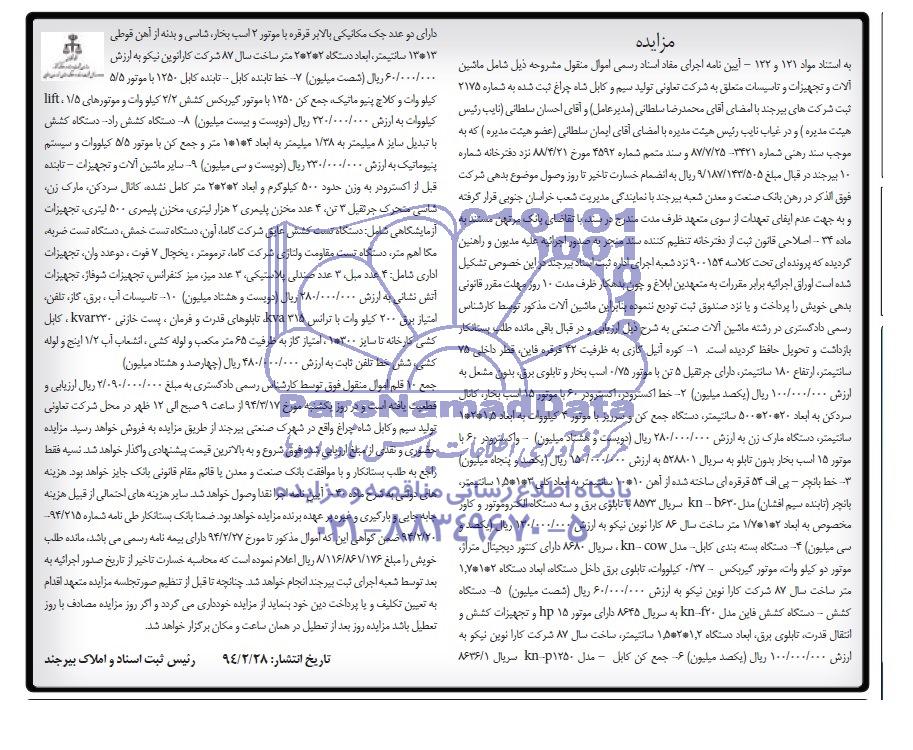 مزایده
به استناد مواد ۱۲۱ و ۱۲۲ – آیین نامه اجرای مفاد اسناد رسمی اموال منقول مشروحه ذیل شامل ماشین
آلات و تجهیزات و تاسیسات متعلق به شرکت تعاونی تولید سیم و کابل شاه چراغ ثبت شده به شماره ۲۱۷۵
ثبت شرکت های بیرجند با امضای آقای محمدرضا سلطانی (مدیرعامل) و آقای احسان سلطانی (نایب رئیس
هیئت مدیره ) و در غیاب نایب رئیس هیئت مدیره با امضای آقای ایمان سلطانی (عضو هیئت مدیره ) که به
موجب سند رهنی شماره ۳۴۲۱– ۸۷/۷/۲۵ و سند متمم شماره ۴۵۹۲ مورخ ۸۸/۴/۲۱ نزد دفترخانه شماره
۱۰ بیرجند در قبال مبلغ ۹/۱۸۷/۱۴۳/۵۰۵ ریال به انضمام خسارت تاخیر تا روز وصول موضوع بدهی شرکت
فوق الذکر در رهن بانک صنعت و معدن شعبه بیرجند با نمایندگی مدیریت شعب خراسان جنوبی قرار گرفته
و به جهت عدم ایفای تعهدات از سوی متعهد ظرف مدت مندرج در سند، با تقاضای بانک مرتهن مستند به
ماده ۳۴ – اصلاحی قانون ثبت از دفترخانه تنظیم کننده سند منجر به صدور اجرائیه علیه مدیون و راهنین
گردیده که پرونده ای تحت کلاسه ۹۰۰۱۵۴ نزد شعبه اجرای اداره ثبت اسناد بیرجند در این خصوص تشکیل
شده است اوراق اجرائیه برابر مقررات به متعهدین ابلاغ و چون بدهکار ظرف مدت ۱۰ روز مهلت مقرر قانونی
بدهی خویش را پرداخت و یا نزد صندوق ثبت تودیع ننموده بنابراین ماشین آلات مذکور توسط کارشناس
رسمی دادگستری در رشته ماشین آلات صنعتی به شرح ذیل ارزیابی و در قبال باقی مانده طلب بستانکار
بازداشت و تحویل حافظ گردیده است. ۱– کوره آنیل گازی به ظرفیت ۴۲ قرقره فاین، قطر داخلی ۷۵
سانتیمتر، ارتفاع ۱۸۰ سانتیمتر، دارای جرثقیل ۵ تن با موتور ۰/۷۵ اسب بخار و تابلوی برق، بدون مشعل به
ارزش ۱۰۰/۰۰۰/۰۰۰ ریال (یکصد میلیون) ۲– خط اکسترودر، اکسترودر ۶۰ با موتور ۱۵ اسب بخار، کانال
سردکن به ابعاد ۲۰*۲۰*۵۰۰ سانتیمتر، دستگاه جمع کن و سرریز با موتور ۴ کیلووات به ابعاد ۱،۵*۲*۱
سانتیمتر، دستگاه مارک زن به ارزش ۲۸۰/۰۰۰/۰۰۰ ریال (دویست و هشتاد میلیون) – واکسترودر ۶۰ با
موتور ۱۵ اسب بخار بدون تابلو به سریال ۵۲۸۸۰۱ به ارزش ۱۵۰/۰۰۰/۰۰۰ ریال (یکصد و پنجاه میلیون)
۳– خط بانچر – پی اف ۵۴ قرقره ای ساخته شده از آهن ۱۰*۱۰ سانتیمتر به ابعاد کلی ۳*۱،۵*۱ سانتیمتر،
بانچر (تابنده سیم افشان) مدل kn – b۶۳۰ سریال ۸۵۷۳ با تابلوی برق و سه دستگاه الکتروموتور و کاور
مخصوص به ابعاد ۲*۱*۱/۷ متر ساخت سال ۸۶ کارا نوین نیکو به ارزش ۱۳۰/۰۰۰/۰۰۰ ریال (یکصد و
سی میلیون) ۴– دستگاه بسته بندی کابل– مدل kn– cow ، سریال ۸۶۸۰ دارای کنتور دیجیتال متراژ،
موتور دو کیلو وات، موتور گیربکس – ۰/۳۷ کیلووات، تابلوی برق داخل دستگاه، ابعاد دستگاه ۲*۱*۱،۷
متر ساخت سال ۸۷ شرکت کارا نوین نیکو به ارزش ۶۰/۰۰۰/۰۰۰ ریال (شصت میلیون) ۵– دستگاه
کشش – دستگاه کشش فاین مدل kn–f۲۰ به سریال ۸۶۴۵ دارای موتور ۱۵ hp و تجهیزات کشش و
انتقال قدرت، تابلوی برق، ابعاد دستگاه ۱،۲*۲*۱،۵ سانتیمتر، ساخت سال ۸۷ شرکت کارا نوین نیکو به
ارزش ۱۰۰/۰۰۰/۰۰۰ ریال (یکصد میلیون) ۶– جمع کن کابل – مدل kn–p۱۲۵۰ سریال ۸۶۳۶/۱
دارای دو عدد جک مکانیکی بالابر قرقره با موتور ۲ اسب بخار، شاسی و بدنه از آهن قوطی
۱۳*۱۳ سانتیمتر، ابعاد دستگاه ۲*۲*۲ متر ساخت سال ۸۷ شرکت کارانوین نیکو به ارزش
۶۰/۰۰۰/۰۰۰ ریال (شصت میلیون) ۷– خط تابنده کابل – تابنده کابل ۱۲۵۰ با موتور ۵/۵
کیلو وات و کلاچ پنیو ماتیک، جمع کن ۱۲۵۰ با موتور گیربکس کشش ۲/۲ کیلو وات و موتورهای lift ، ۱/۵
کیلووات به ارزش ۲۲۰/۰۰۰/۰۰۰ ریال (دویست و بیست میلیون) ۸– دستگاه کشش راد– دستگاه کشش
با تبدیل سایز ۸ میلیمتر به ۱/۳۸ میلیمتر به ابعاد ۴*۱*۱ متر و جمع کن با موتور ۵/۵ کیلووات و سیستم
پنیوماتیک به ارزش ۲۳۰/۰۰۰/۰۰۰ ریال (دویست و سی میلیون) ۹– سایر ماشین آلات و تجهیزات – تابنده
قبل از اکسترودر به وزن حدود ۵۰۰ کیلوگرم و ابعاد ۲*۲*۲ متر کامل نشده، کانال سردکن، مارک زن،
شاسی متحرک جرثقیل ۳ تن، ۴ عدد مخزن پلیمری ۲ هزار لیتری، مخزن پلیمری ۵۰۰ لیتری، تجهیزات
آزمایشگاهی شامل: دستگاه تست کشش عایق شرکت گاما، آون، دستگاه تست خمش، دستگاه تست ضربه،
مگا اهم متر، دستگاه تست مقاومت ولتاژی شرکت گاما، ترمومتر ، یخچال ۷ فوت ، دوعدد وان، تجهیزات
اداری شامل: ۴ عدد مبل، ۳ عدد صندلی پلاستیکی، ۳ عدد میز، میز کنفرانس، تجهیزات شوفاژ، تجهیزات
آتش نشانی به ارزش ۲۸۰/۰۰۰/۰۰۰ ریال (دویست و هشتاد میلیون) ۱۰– تاسیسات آب ، برق، گاز، تلفن،
امتیاز برق ۲۰۰ کیلو وات با ترانس kva ۳۱۵، تابلوهای قدرت و فرمان ، پست خازنی kvar۲۳۰ ، کابل
کشی کارخانه تا سایز ۳۰۰*۱ ، امتیاز گاز به ظرفیت ۶۵ متر مکعب و لوله کشی ، انشعاب آب ۱/۲ اینچ و لوله
کشی، شش خط تلفن ثابت به ارزش ۴۸۰/۰۰۰/۰۰۰ ریال (چهارصد و هشتاد میلیون)
جمع ۱۰ قلم اموال منقول فوق توسط کارشناس رسمی دادگستری به مبلغ ۲/۰۹۰/۰۰۰/۰۰۰ ریال ارزیابی و
قطعیت یافته است و در روز یکشنبه مورخ ۹۴/۳/۱۷ از ساعت ۹ صبح الی ۱۲ ظهر در محل شرکت تعاونی
تولید سیم و کابل شاه چراغ واقع در شهرک صنعتی بیرجند از طریق مزایده به فروش خواهد رسید. مزایده
حضوری و نقدی از مبلغ ارزیابی شده فوق شروع و به بالاترین قیمت پیشنهادی واگذار خواهد شد. نسیه فقط
راجع به طلب بستانکار و با موافقت بانک صنعت و معدن یا قائم مقام قانونی بانک جایز خواهد بود. هزینه
های دولتی به شرح ماده ۴۰ – آیین نامه اجرا نقدا وصول خواهد شد. سایر هزینه های احتمالی از قبیل هزینه
جابه جایی و بارگیری و غیره بر عهده برنده مزایده خواهد بود. ضمنا بانک بستانکار طی نامه شماره ۹۴/۲۱۵–
۹۴/۲/۲۰ ضمن گواهی این که اموال مذکور تا مورخ ۹۴/۲/۲۷ دارای بیمه نامه رسمی می باشد، مانده طلب
خویش را مبلغ ۸/۱۱۶/۸۶۱/۱۷۶ ریال اعلام نموده است که محاسبه خسارت تاخیر از تاریخ صدور اجرائیه به
بعد توسط شعبه اجرای ثبت بیرجند انجام خواهد شد. چنانچه تا قبل از تنظیم صورتجلسه مزایده متعهد اقدام
به تعیین تکلیف و یا پرداخت دین خود بنماید از مزایده خودداری می گردد و اگر روز مزایده مصادف با روز
تعطیل باشد مزایده روز بعد از تعطیل در همان ساعت و مکان برگزار خواهد شد.
تاریخ انتشار: ۹۴/۲/۲۸ رئیس ثبت اسناد و املاک بیرجند
ParsNamadData
پایگاه اطلاع رسانی مناقصه و مزایده
۰۲۱-۸۸۳۴۹۶۷۰-۵